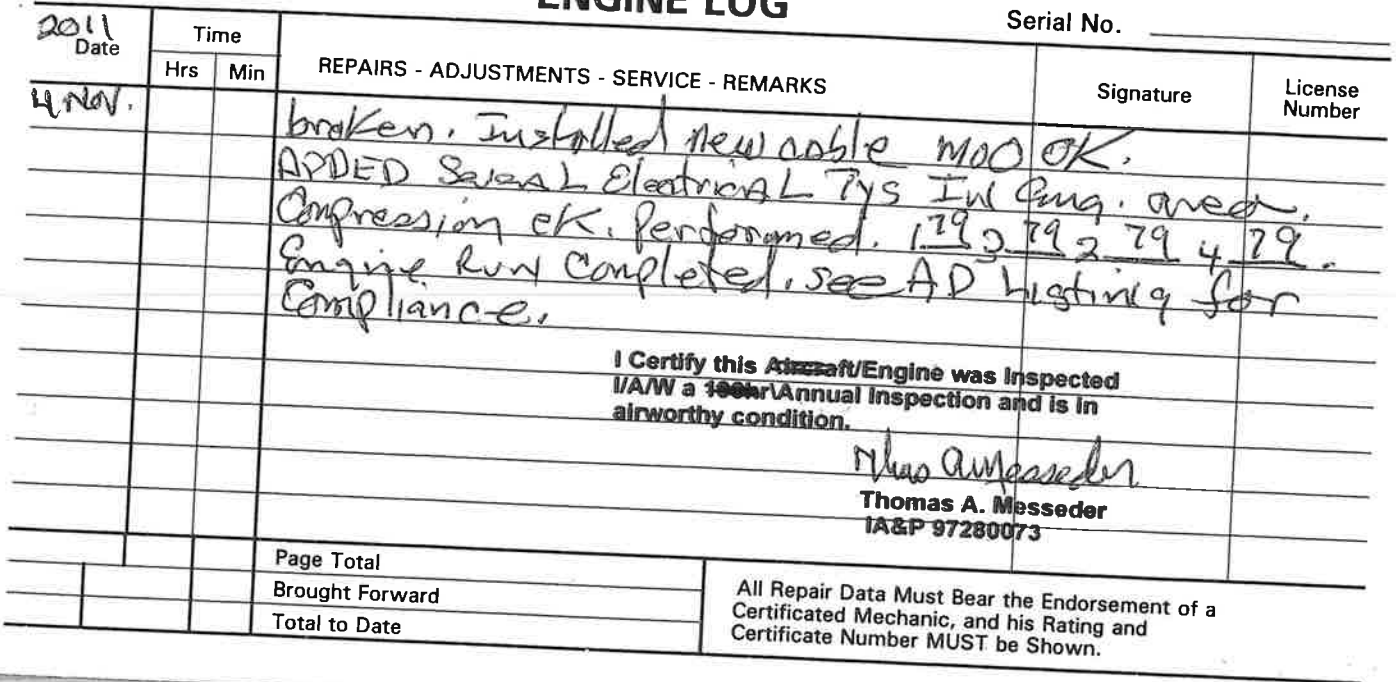 ENGINE LOG
Serial No.
2011
Date
Time
Hrs Min
REPAIRS - ADJUSTMENTS - SERVICE - REMARKS
Signature
License
Number
4 Nov.
broken. Installed new cable MOO OK.
ADDED Several Electrical Tys In Eng. area.
Compression cK. Performed. 1 79 3 79 2 79 4 79.
Engine Run Completed. See AD Listing for
Compliance.
I Certify this Aircraft/Engine was Inspected
I/A/W a 100hr\Annual Inspection and is in
airworthy condition.
Thomas A. Messeder
IA&P 97280073
Page Total
Brought Forward
Total to Date
All Repair Data Must Bear the Endorsement of a
Certificated Mechanic, and his Rating and
Certificate Number MUST be Shown.